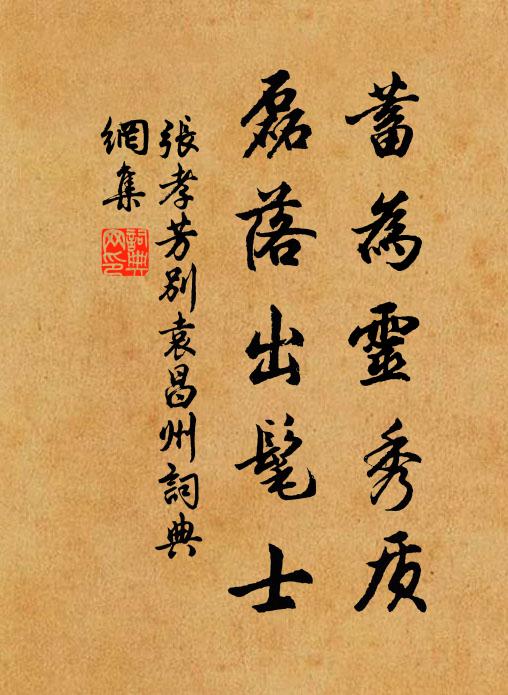 蓄為靈秀质
磊落出髦士
張孝芳别袁昌州詞典
網集
詞典網印